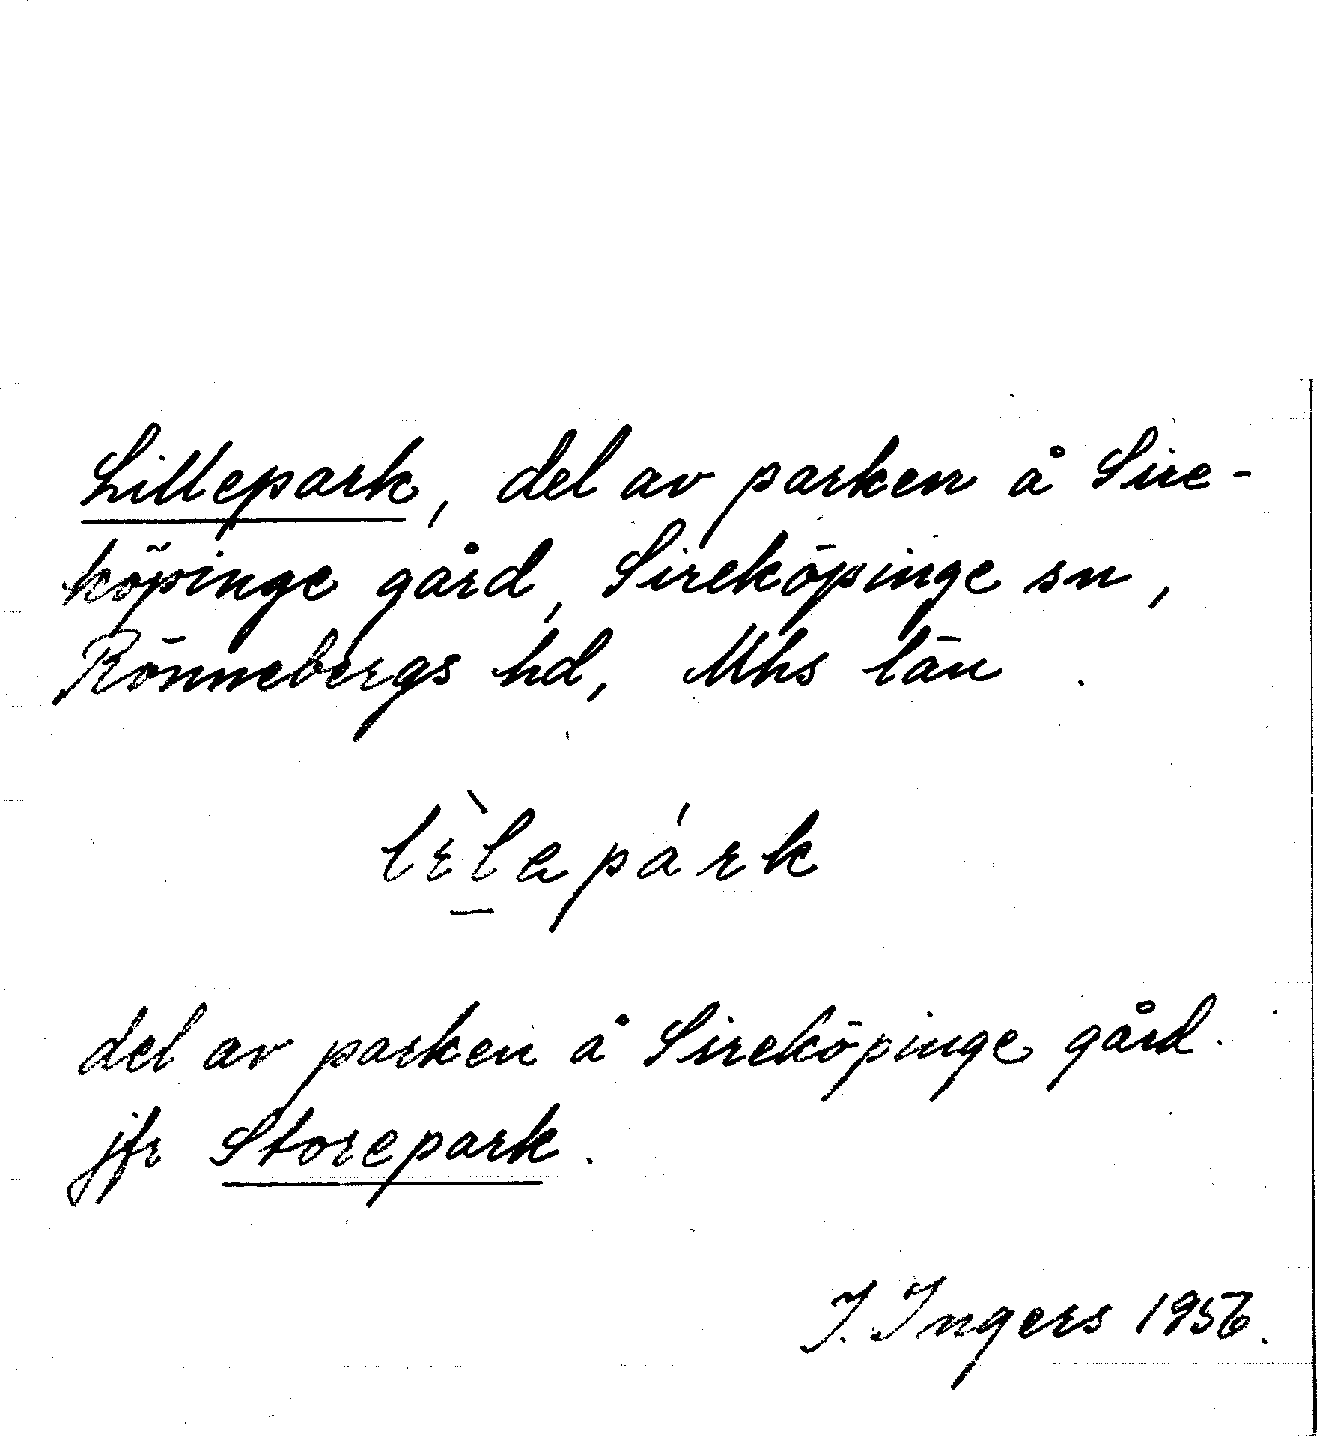 Lillepark, del av parken å Sire-
köpinge gård, Sireköpinge sn,
Rönnebergs hd, Mhs län
del av parken å Sireköpinge gård.
jfr Storepark.
I. Ingers 1956.